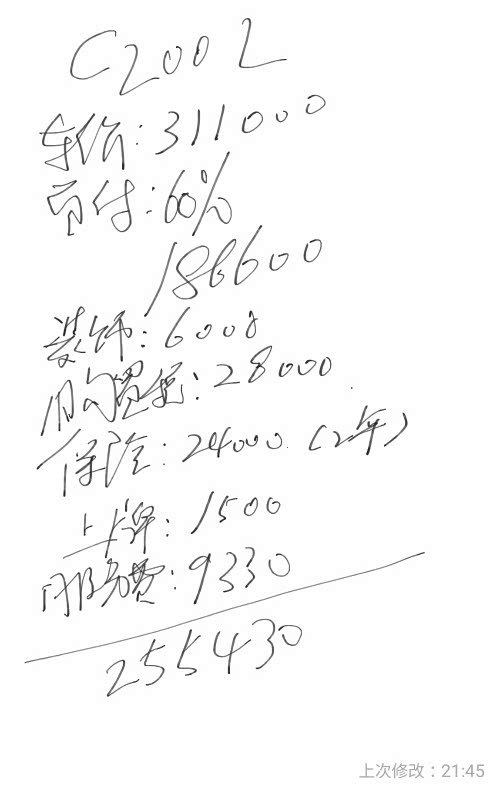 C200L
车价：311000
首付：60%
186600
装饰：6000
购置税：28000
保险：24000（2年）
上牌：1500
服务费：9330
255430
上次修改：21:45